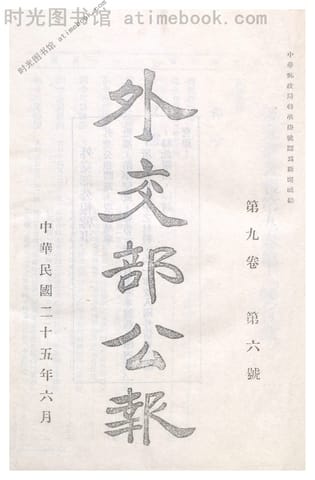 时光图书馆 www.atimebook.com
时光图书馆 atimebook.com
中華郵政局特准掛號認爲新聞紙類
第九卷 第六號
外交部公報
中華民國二十五年六月